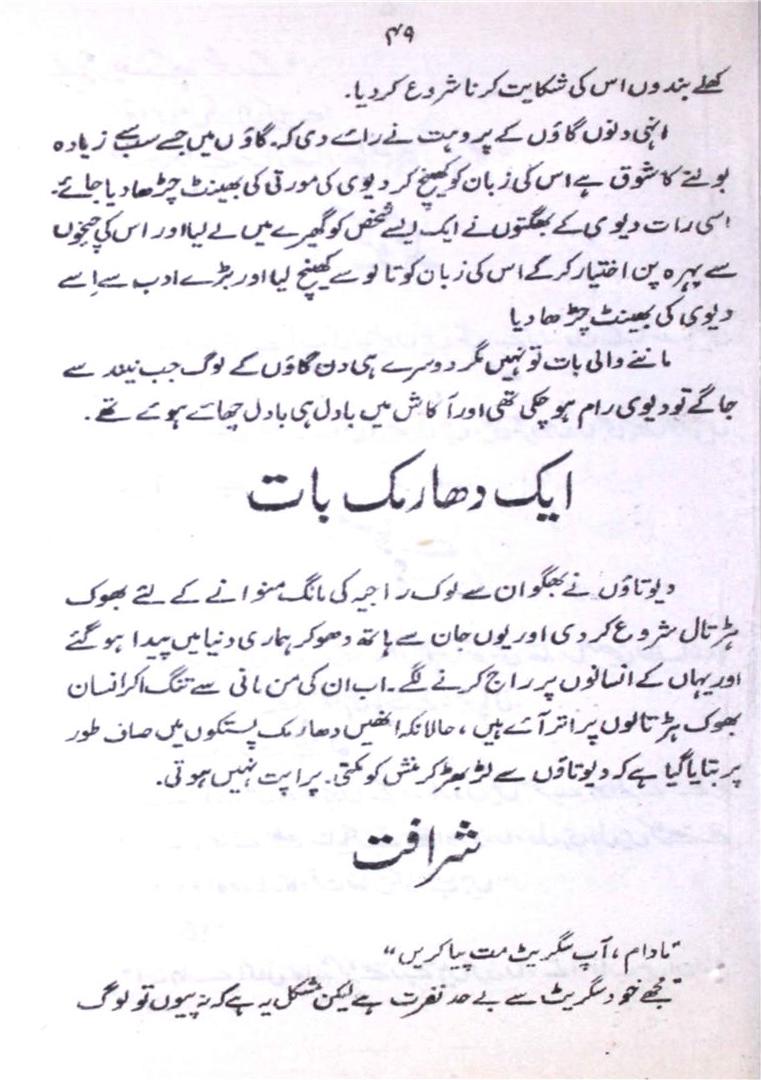 ۴۹
کھلے بندوں اس کی شکایت کرنا شروع کر دیا۔
انہی دنوں گاؤں کے پروہت نے رائے دی کہ۔ گاؤں میں جسے سب سے زیادہ
بولنے کا شوق ہے اس کی زبان کو کھینچ کر دیوی کی مورتی کی بھینٹ چڑھا دیا جائے۔
اسی رات دیوی کے بھگتوں نے ایک ایسے شخص کو گھیرے میں لے لیا اور اس کی چیخوں
سے بہرہ پن اختیار کر کے اس کی زبان کو تالو سے کھینچ لیا اور بڑے ادب سے اِسے
دیوی کی بھینٹ چڑھا دیا
ماننے والی بات تو نہیں مگر دوسرے ہی دن گاؤں کے لوگ جب نیند سے
جاگے تو دیوی رام ہو چکی تھی اور آکاش میں بادل ہی بادل چھائے ہوئے تھے۔
ایک دھارمک بات
دیوتاؤں نے بھگوان سے لوک راجیہ کی مانگ منوانے کے لئے بھوک
ہڑتال شروع کر دی اور یوں جان سے ہاتھ دھو کر ہماری دنیا میں پیدا ہو گئے
اور یہاں کے انسانوں پر راج کرنے لگے۔ اب ان کی من مانی سے تنگ آکر انسان
بھوک ہڑتالوں پر اتر آئے ہیں، حالانکہ انھیں دھارمک پستکوں میں صاف طور
پر بتایا گیا ہے کہ دیوتاؤں سے لڑ بھڑ کر منش کو مکتی۔ پراپت نہیں ہوتی۔
شرافت
"مادام، آپ سگریٹ مت پیا کریں"
"مجھے خود سگریٹ سے بے حد نفرت ہے لیکن مشکل یہ ہے کہ نہ پیوں تو لوگ